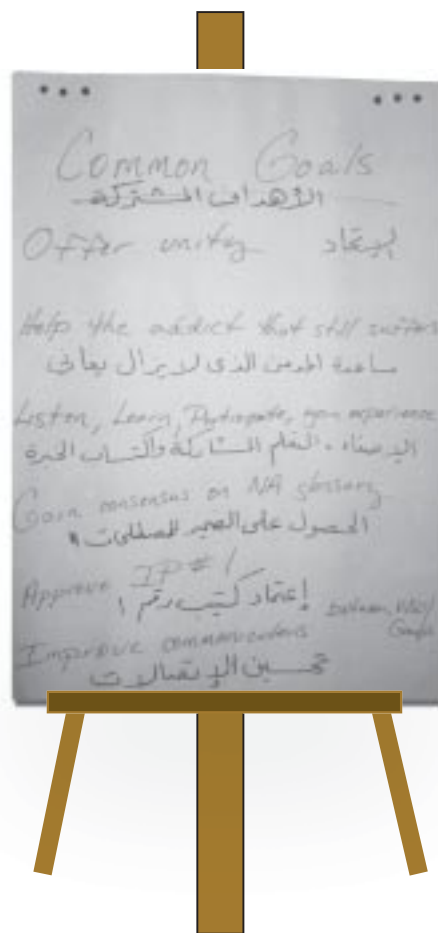 Common Goals
الأهداف المشتركة
Offer unity
الإتحاد
Help the addict that still suffers
مساعدة المدمن الذى لا يزال يعانى
Listen, Learn, Participate, gain experience
الإصغاء، التعلم المشاركة وأكتساب الخبرة
Gain consensus on NA glossary
الحصول على
Approve IP# 1
إعتماد كتيب رقم ١
Improve communications between
تحسين الإتصالات